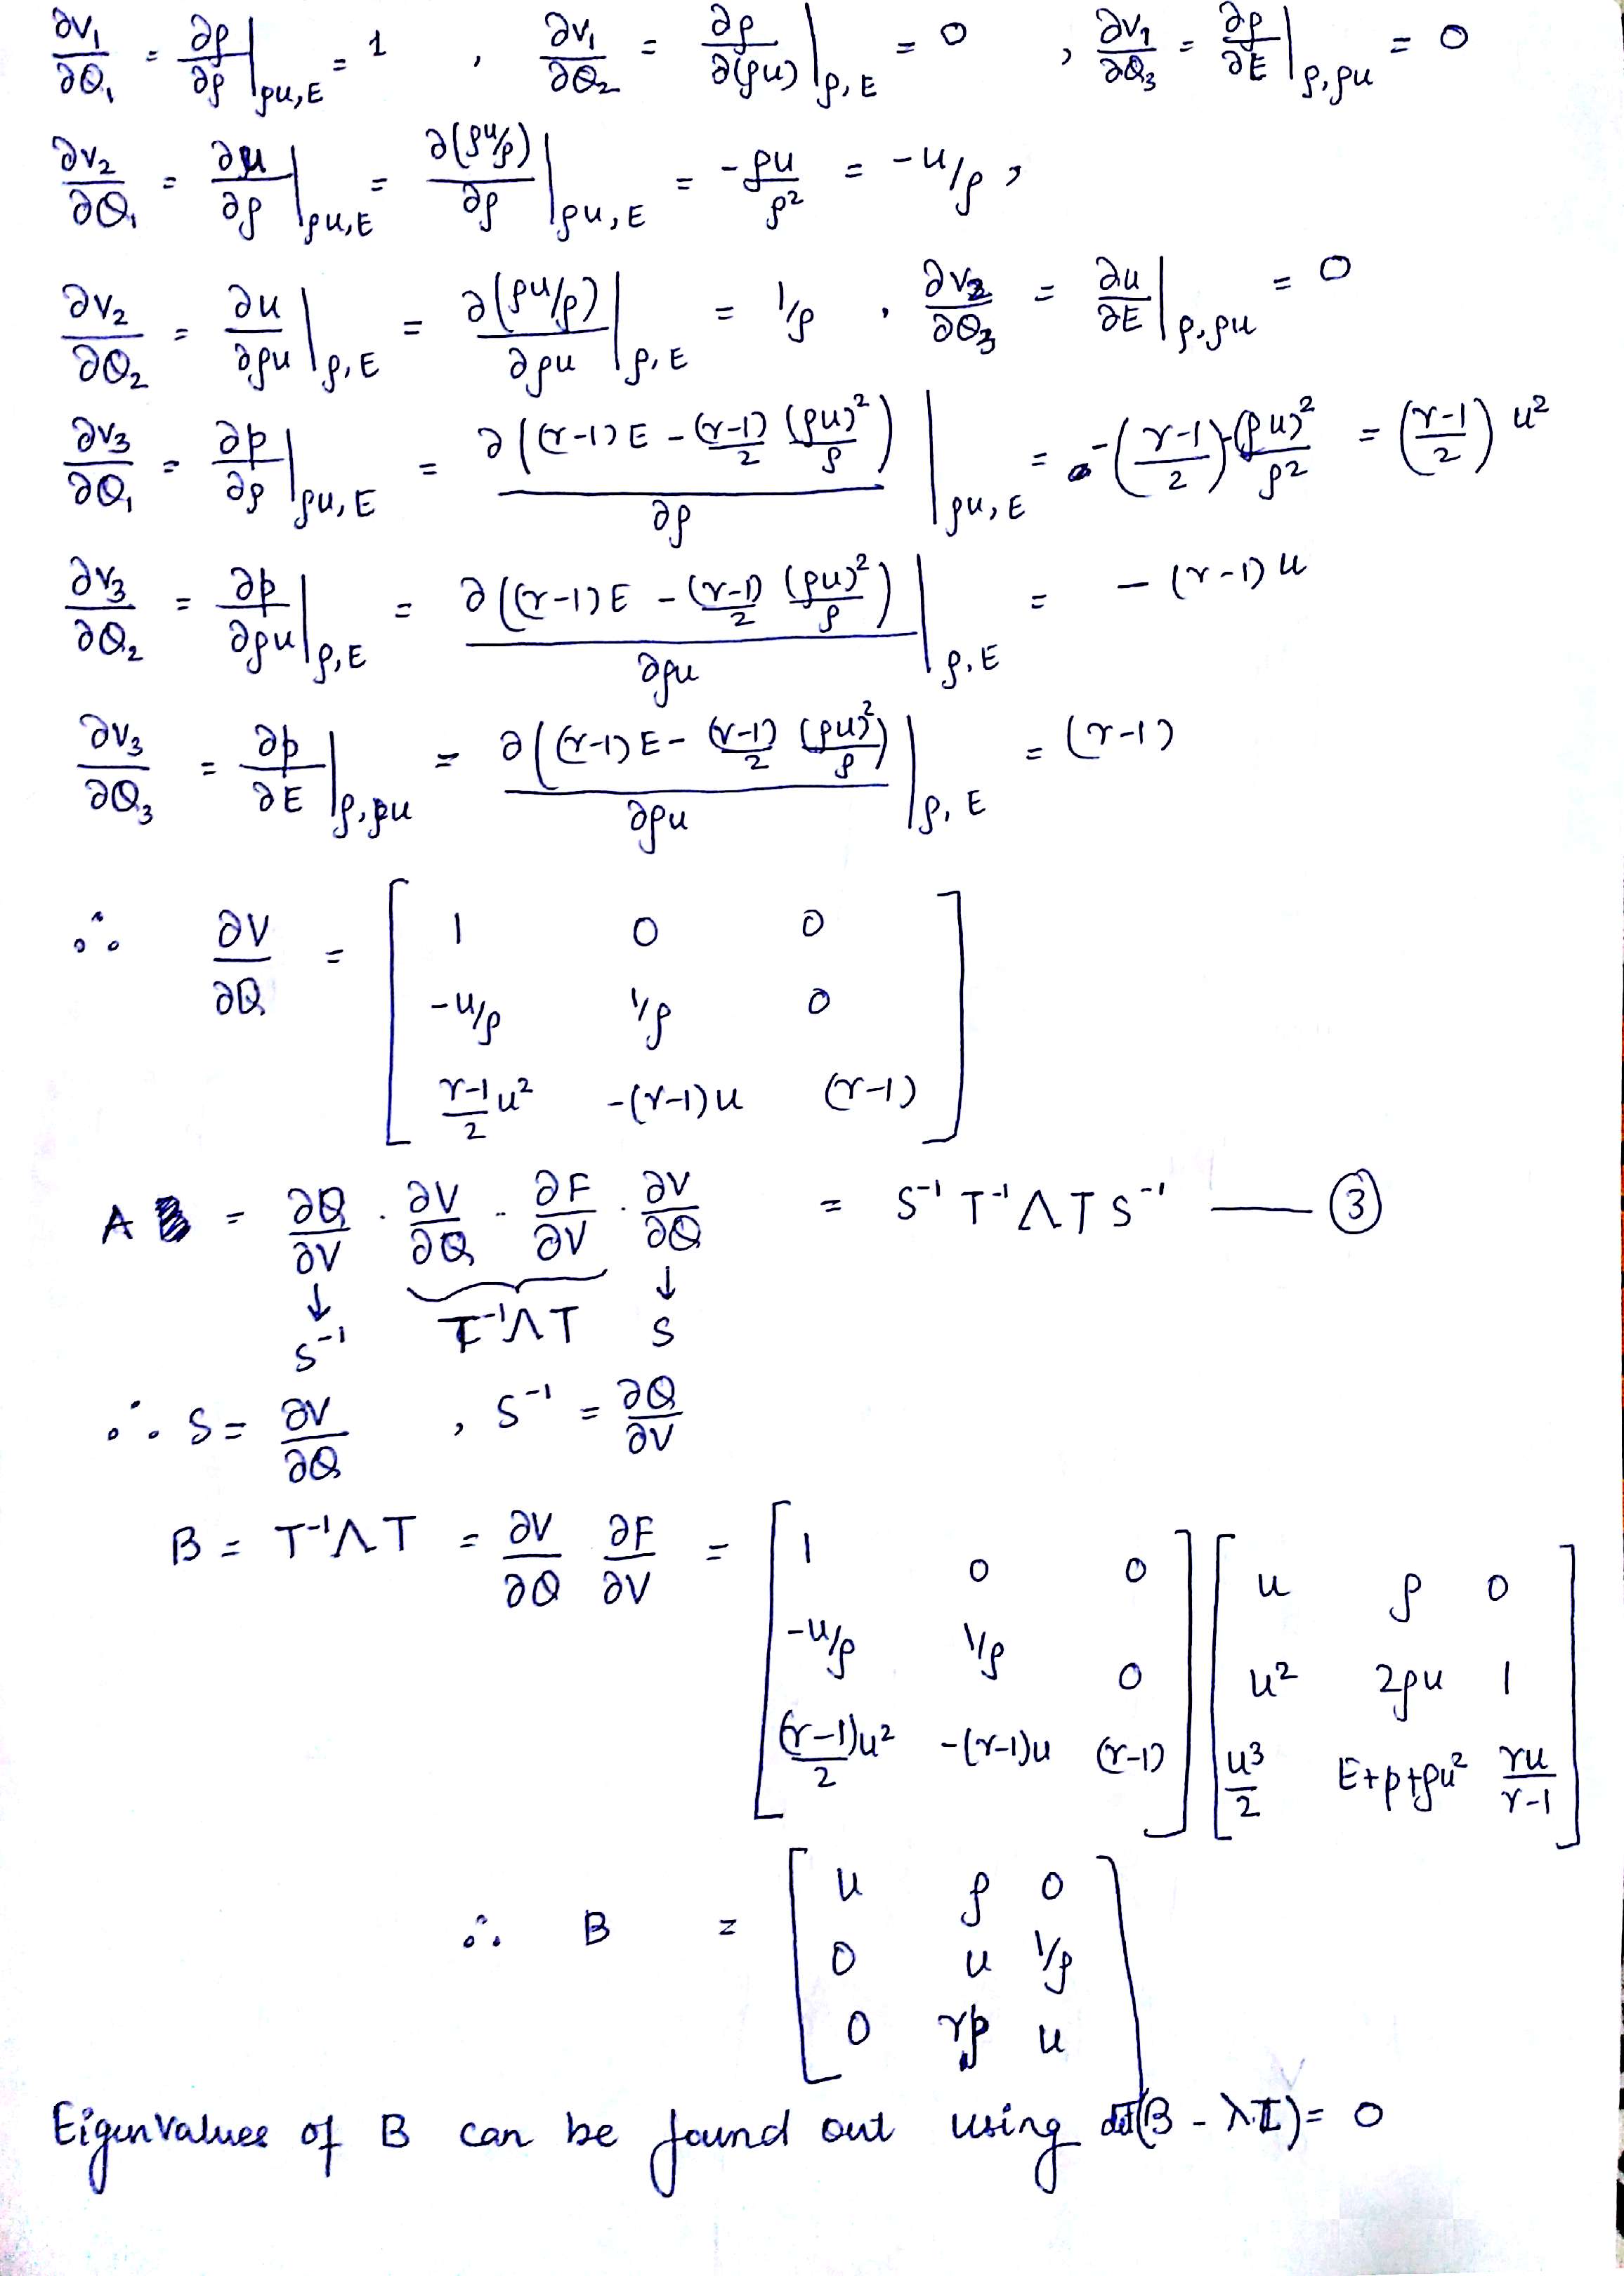 ∂v₁/∂Q₁ = ∂ρ/∂ρ |ρu,E = 1 , ∂v₁/∂Q₂ = ∂ρ/∂(ρu) |ρ,E = 0 , ∂v₁/∂Q₃ = ∂ρ/∂E |ρ,ρu = 0
∂v₂/∂Q₁ = ∂u/∂ρ |ρu,E = ∂(ρu/ρ)/∂ρ |ρu,E = -ρu/ρ² = -u/ρ ,
∂v₂/∂Q₂ = ∂u/∂ρu |ρ,E = ∂(ρu/ρ)/∂ρu |ρ,E = 1/ρ , ∂v₂/∂Q₃ = ∂u/∂E |ρ,ρu = 0
∂v₃/∂Q₁ = ∂p/∂ρ |ρu,E = ∂((γ-1)E - (γ-1)/2 (ρu)²/ρ)/∂ρ |ρu,E = -(γ-1/2)-(ρu)²/ρ² = (γ-1/2) u²
∂v₃/∂Q₂ = ∂p/∂ρu |ρ,E = ∂((γ-1)E - (γ-1)/2 (ρu)²/ρ)/∂ρu |ρ,E = - (γ-1) u
∂v₃/∂Q₃ = ∂p/∂E |ρ,ρu = ∂((γ-1)E - (γ-1)/2 (ρu)²/ρ)/∂ρu |ρ,E = (γ-1)
∴ ∂V/∂Q = [ 1 0 0
-u/ρ 1/ρ 0
γ-1/2 u² -(γ-1)u (γ-1) ]
A = ∂Q/∂V · ∂V/∂Q · ∂F/∂V · ∂V/∂Q = S⁻¹ T⁻¹ Λ T S⁻¹ —— ③
↓ ↓
S⁻¹ T⁻¹ΛT S
∴ S = ∂V/∂Q , S⁻¹ = ∂Q/∂V
B = T⁻¹ΛT = ∂V/∂Q ∂F/∂V = [ 1 0 0 ] [ u ρ 0 ]
-u/ρ 1/ρ 0 u² 2ρu 1
(γ-1)u²/2 -(γ-1)u (γ-1) u³/2 E+p+ρu² γu/γ-1
∴ B = [ u ρ 0
0 u 1/ρ
0 γp u ]
Eigenvalues of B can be found out using det(B - λI) = 0